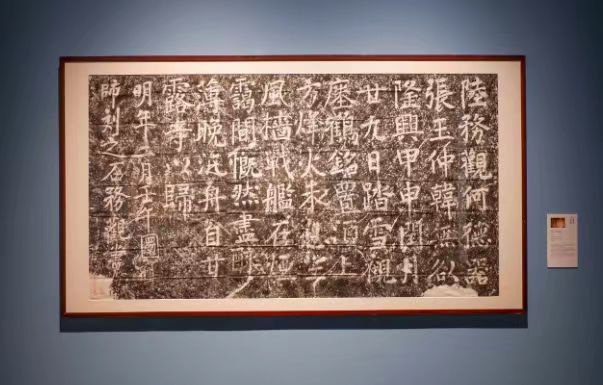 陸務觀何德器
張玉仲韓无咎
隆興甲申閏月
廿九日踏雪觀
瘞鶴銘置酒上
方烽火未息望
風檣戰艦在煙
靄間慨然盡醉
薄晚泛舟自甘
露寺以歸
明年二月壬午圜禪
師刻之石務觀書